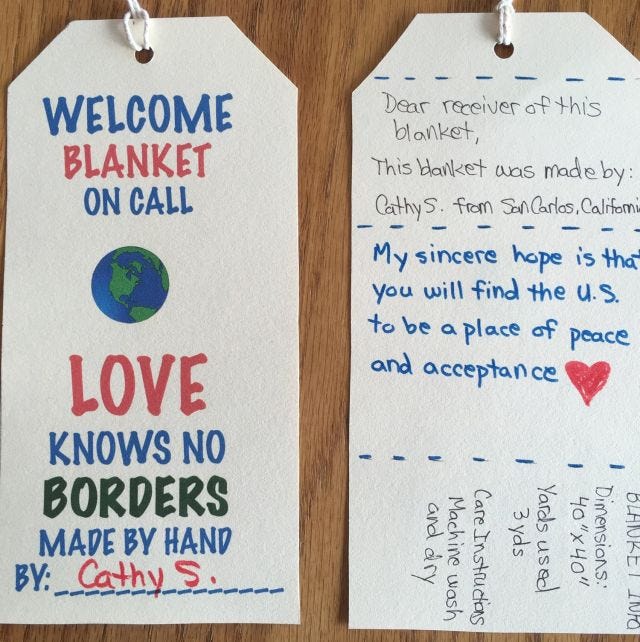 WELCOME
BLANKET
ON CALL
LOVE
KNOWS NO
BORDERS
MADE BY HAND
BY: Cathy S.
Dear receiver of this
blanket,
This blanket was made by:
Cathy S. from San Carlos, Californi
My sincere hope is that
you will find the U.S.
to be a place of peace
and acceptance
BLANKET INFO
Dimensions:
40"x40"
Yards used
3 yds
Care Instructions
Machine wash
and dry